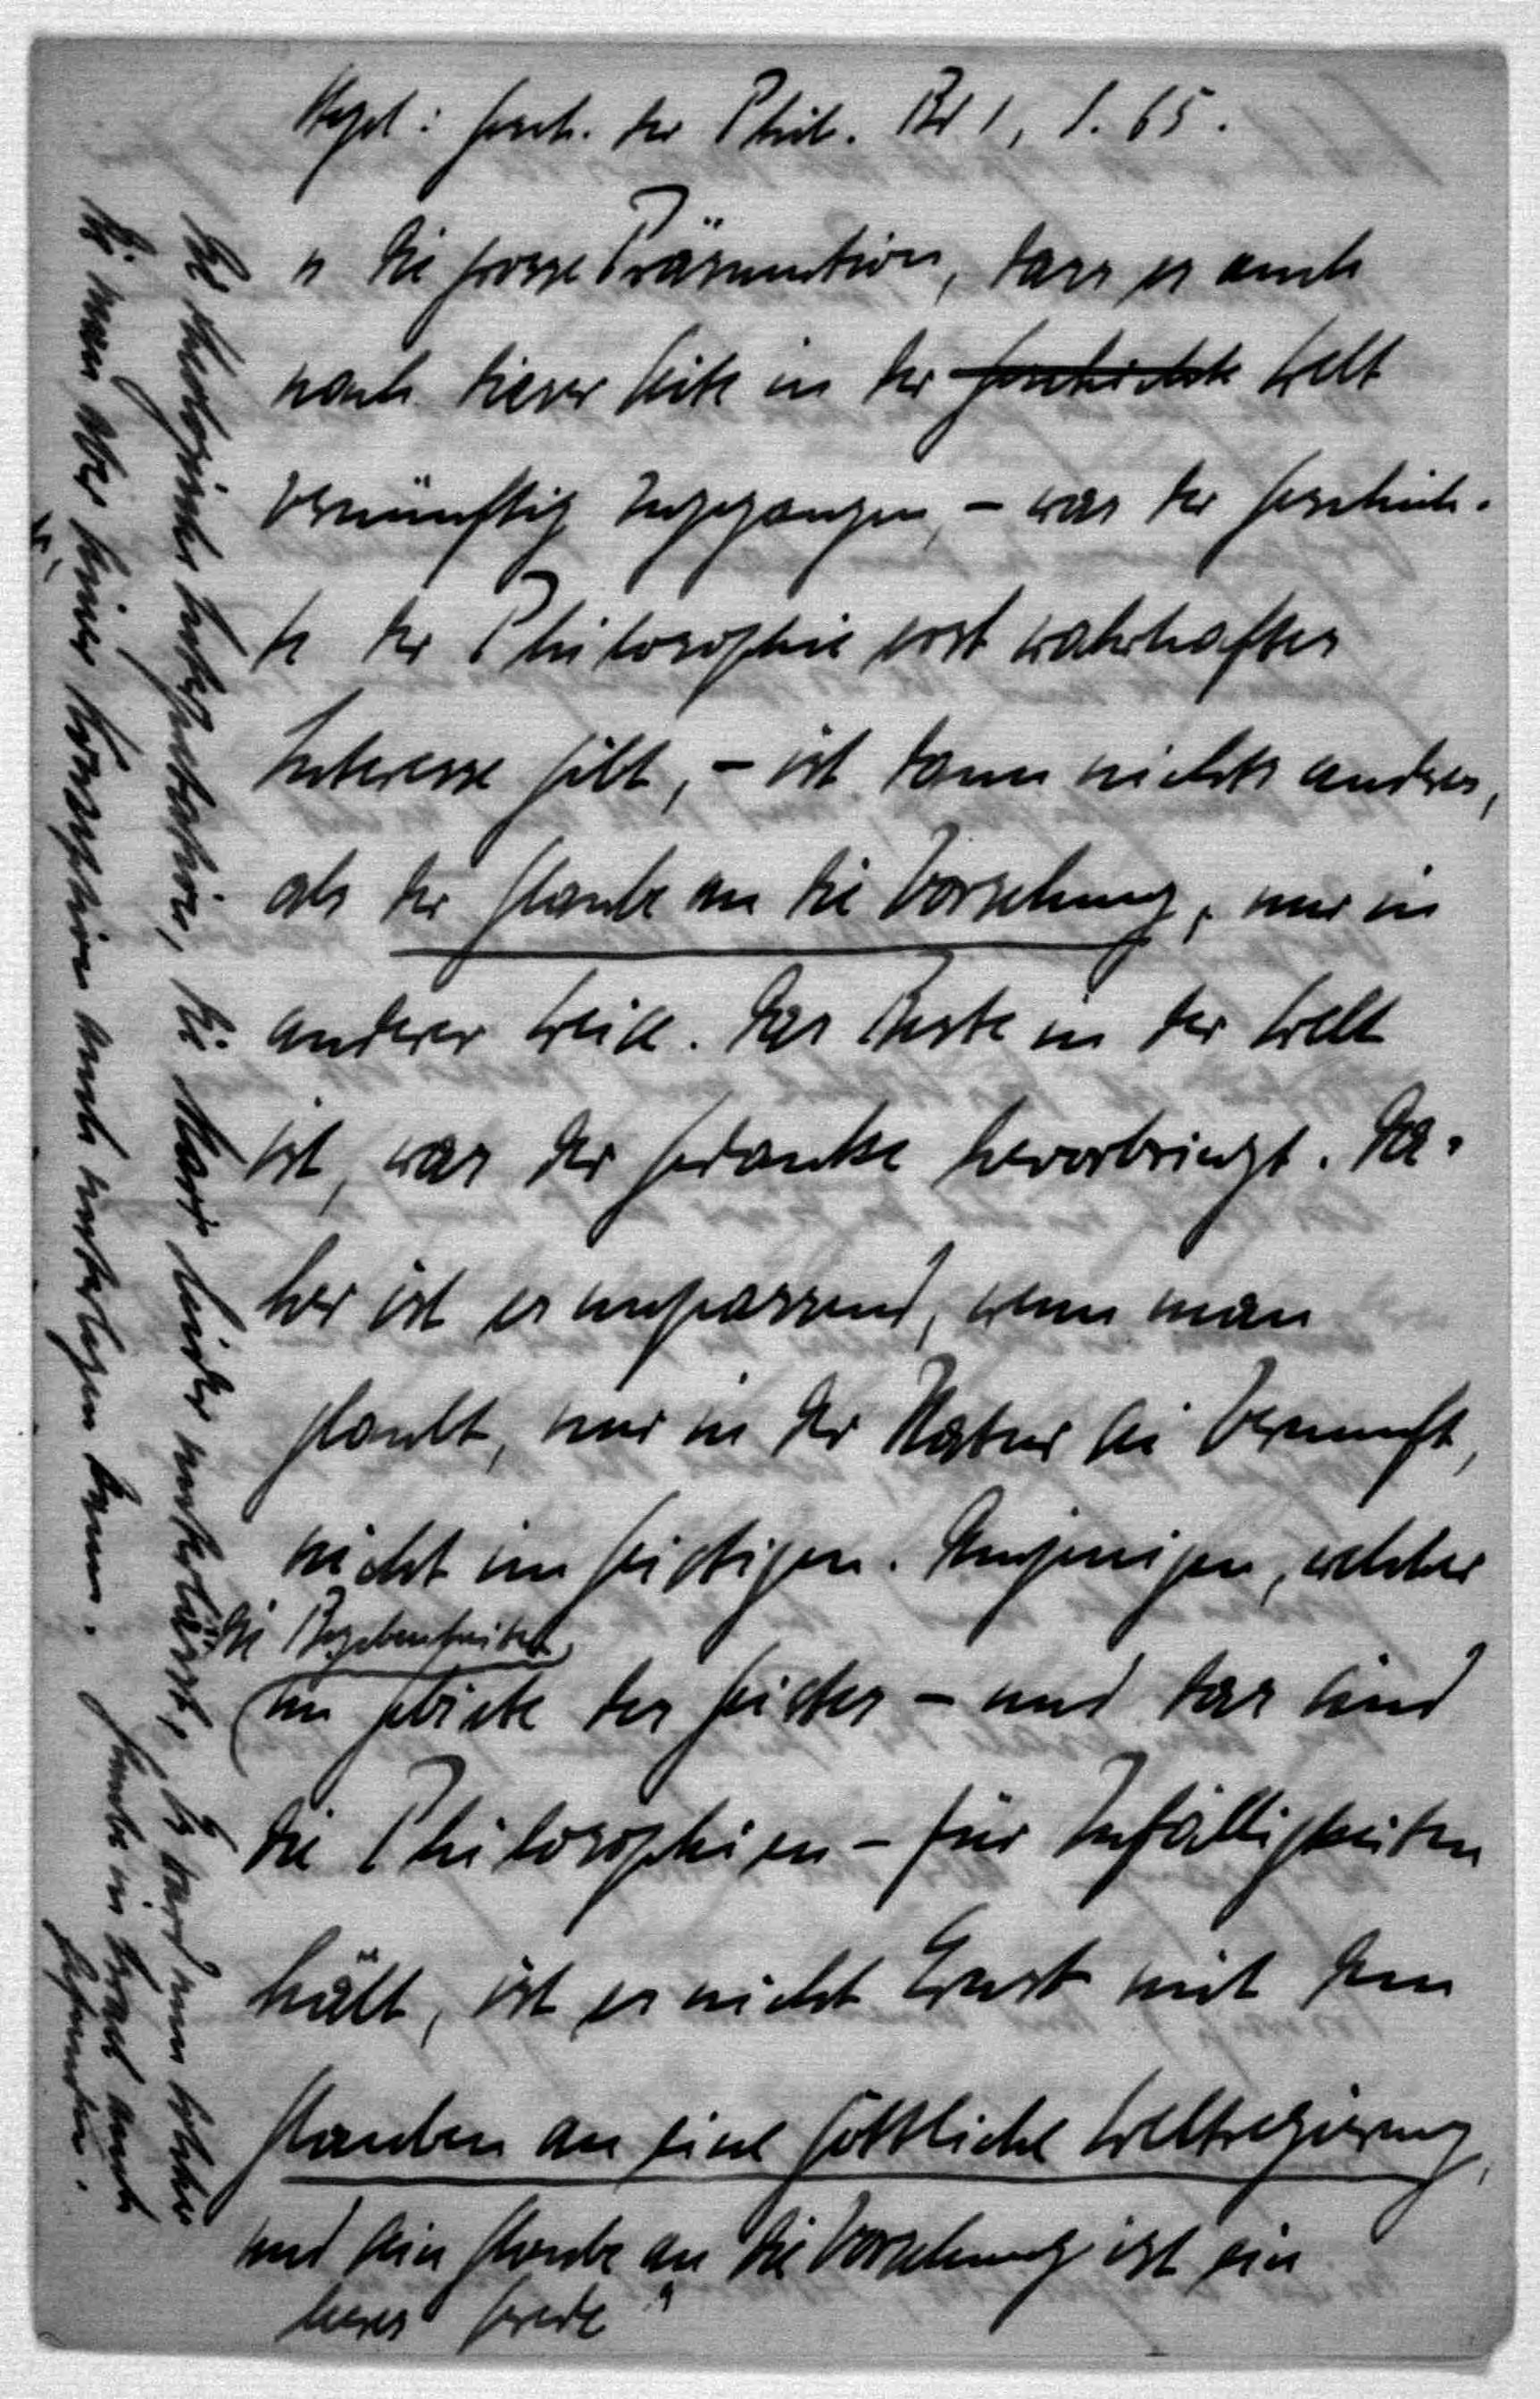 Hegel: Gesch. der Phil. Bd 1, S. 65.
"Die grosse Präsumtion, dass es auch
nach dieser Seite in der Geschichte Welt
vernünftig zugegangen, – was der Geschich-
te der Philosophie erst wahrhaftes
Interesse gibt, – ist dann nichts anderes,
als der Glaube an die Vorsehung, nur in
anderer Weise. Das Beste in der Welt
ist, was der Gedanke hervorbringt. Da-
her ist es unpassend, wenn man
glaubt, nur in der Natur sei Vernunft,
nicht im Geistigen. Demjenigen, welcher
die Begebenheiten
im Gebiete des Geistes – und das sind
die Philosophien – für Zufälligkeiten
hält, ist es nicht Ernst mit dem
Glauben an eine göttliche Weltregierung,
und sein Glaube an die Vorsehung ist ein
leeres Gerede"
Die theologische Interpretation, die Marx leider unterlässt,
die man aber seiner Konzeption auch unterlegen kann.